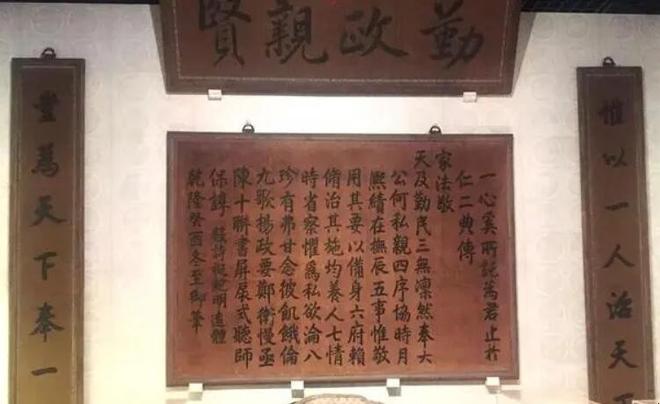 勤政親賢
惟以一人治天下
一心奚所託為君止於
仁二典傳
家法敬
天及勤民三無凜然奉六
公何私親四序協時月
熙績在撫辰五事惟敬
用其要以備身六府賴
脩治其施均養人七情
時省察懼為私欲淪八
珍有弗甘念彼飢餓倫
九歌揚政要鄭衛慢亟
陳十聯書屏扆式聽師
保諄 數詩擬鮑明遠體
乾隆癸酉冬至御筆
豈為天下奉一